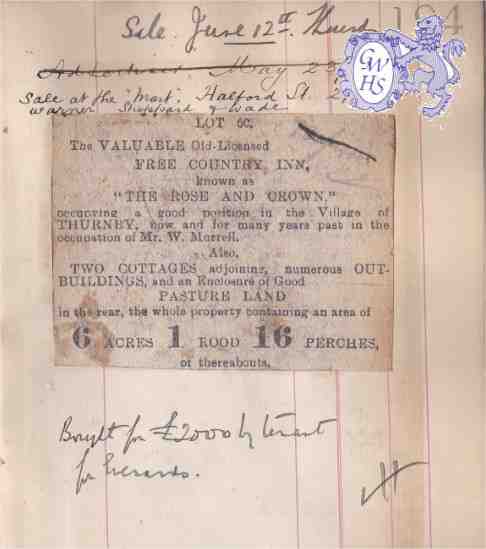 Sale June 12th Thurst
194
Advertised May 23
Sale at the "Mart", Halford St. 2.
Warner Sheppard & Wade
GWHS
LOT 5C.
The VALUABLE Old-Licensed
FREE COUNTRY INN,
known as
"THE ROSE AND CROWN,"
occupying a good position in the Village of
THURNBY, now and for many years past in the
occupation of Mr. W. Murrell.
Also,
TWO COTTAGES adjoining, numerous OUT-
BUILDINGS, and an Enclosure of Good
PASTURE LAND
in the rear, the whole property containing an area of
6 ACRES 1 ROOD 16 PERCHES,
or thereabouts.
Bought for £2000 by tenant
for Everards.